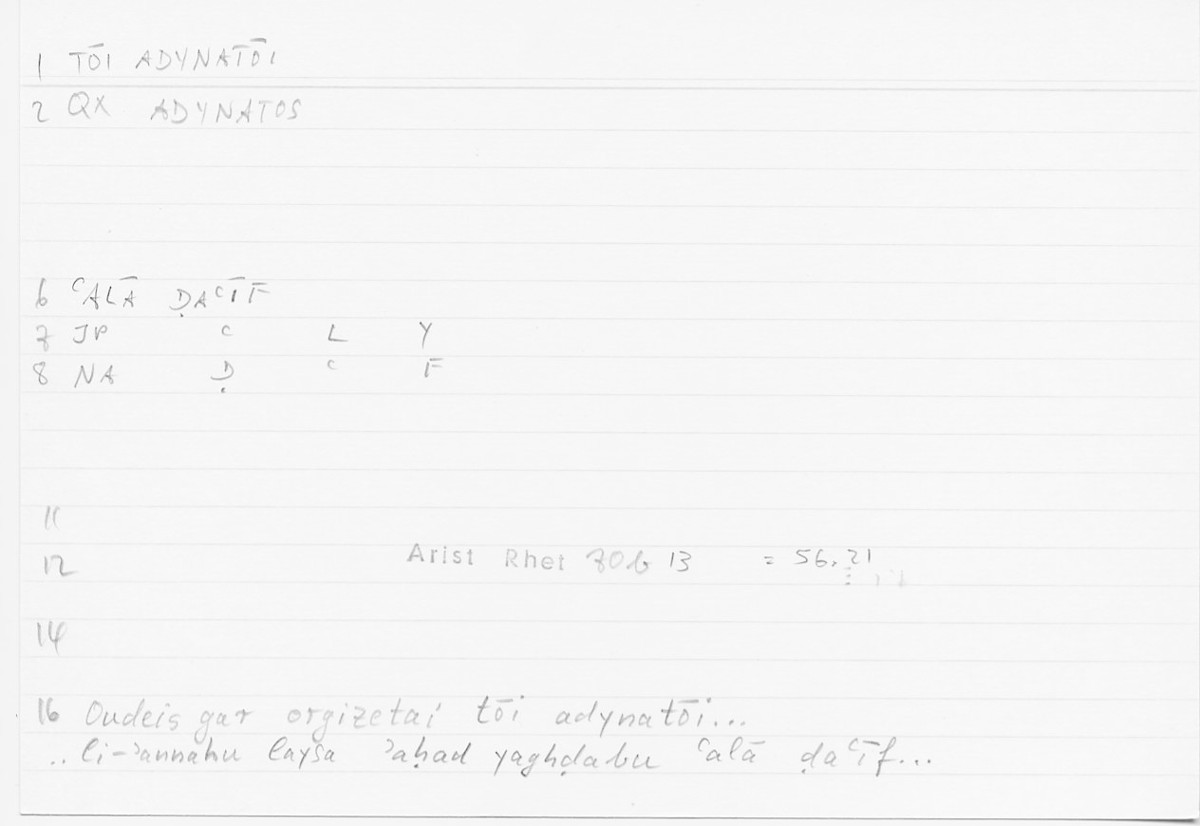 1 TŌI ADYNATŌI
2 QX ADYNATOS
6 ʿALĀ ḌAʿĪF
7 JP ʿ L Y
8 NA Ḍ ʿ F
11
12 Arist Rhet 70b 13 = 56,21
14
16 Oudeis gar orgizetai tōi adynatōi...
.. li-ʾannahu laysa ʾaḥad yaghḍabu ʿalā ḍaʿīf...